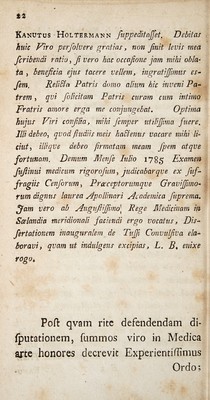 22
KANUTUS HOLTERMANN suppeditasset. Debitas
huic Viro persolvere gratias, non sinit levis mea
scribendi ratio, si vero hac occasione jam mihi obla-
ta, beneficia ejus tacere vellem, ingratissimus es-
sem. Relicta Patris domo alium hic inveni Pa-
trem, qui solicitam Patris curam cum intimo
Fratris amore erga me conjugebat. Optima
hujus Viri consilia, mihi semper utilissima fuere.
Illi debeo, quod studiis meis hactenus vacare mihi li-
ciut, illique debeo firmatam meam spem atque
fortunam. Demum Mense Julio 1785 Examen
sustinui medicum rigorosum, judicabarque ex suf-
fragiis Censorum, Præceptorumque Gravissimo-
rum dignus laurea Apollinari Academica suprema.
Jam vero ab Augustissimo Rege Medicinam in
Sælandia meridionali faciendi ergo vocatus, Dis-
sertationem inauguralem de Tussi Convulsiva ela-
boravi, quam ut indulgens excipias, L. B. enixe
rogo.
Post qvam rite defendendam di-
sputationem, summos viro in Medica
arte honores decrevit Experientissimus
Ordo;